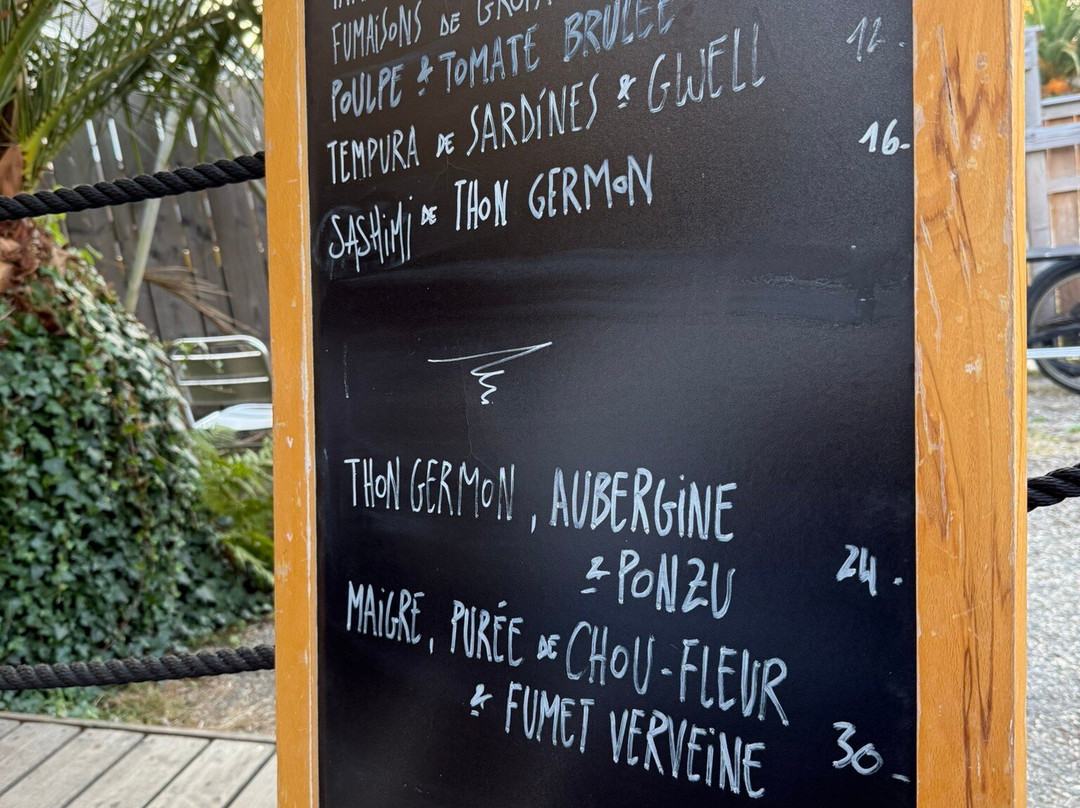 FUMAISONS DE
POULPE & TOMATE BRULÉE
TEMPURA DE SARDINES & GWELL 12.
SASHIMI DE THON GERMON 16.
THON GERMON, AUBERGINE
& PONZU 24.
MAIGRE, PURÉE DE CHOU-FLEUR
& FUMET VERVEINE 30.